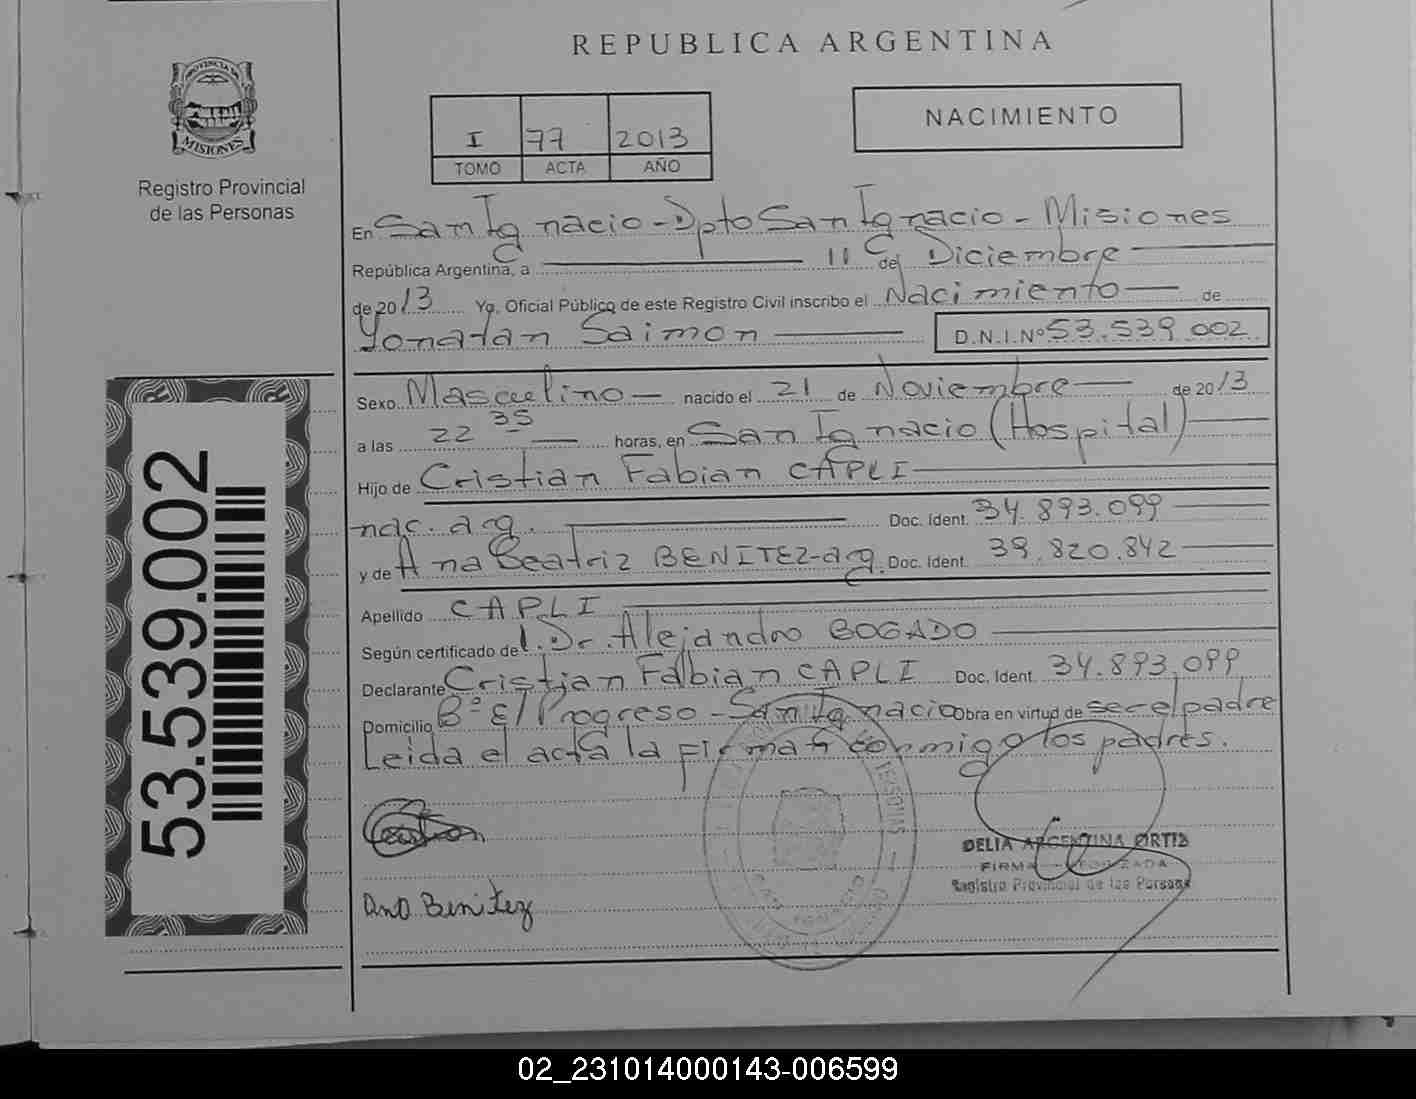 REPUBLICA ARGENTINA
PROVINCIA DE
MISIONES
Registro Provincial
de las Personas
I 77 2013
TOMO ACTA AÑO
NACIMIENTO
En San Ignacio - Dpto San Ignacio - Misiones
República Argentina, a 11 de Diciembre
de 2013 Yo, Oficial Público de este Registro Civil inscribo el Nacimiento de
Yonatan Saimon D.N.I. Nº 53.539.002
Sexo Masculino nacido el 21 de Noviembre de 2013
a las 22 35 horas, en San Ignacio (Hospital)
Hijo de Cristian Fabian CAPLI
nac. arg. Doc. Ident. 34.893.099
y de Ana Beatriz BENITEZ-arg. Doc. Ident. 39.820.842
Apellido CAPLI
Según certificado del Dr. Alejandro BOGADO
Declarante Cristian Fabian CAPLI Doc. Ident. 34.893.099
Domicilio Bº El Progreso - San Ignacio Obra en virtud de ser el padre
Leida el acta la firman conmigo los padres.
DELIA ARGENTINA ORTIZ
FIRMA AUTORIZADA
Registro Provincial de las Personas
Ana Benitez
53.539.002
02_231014000143-006599